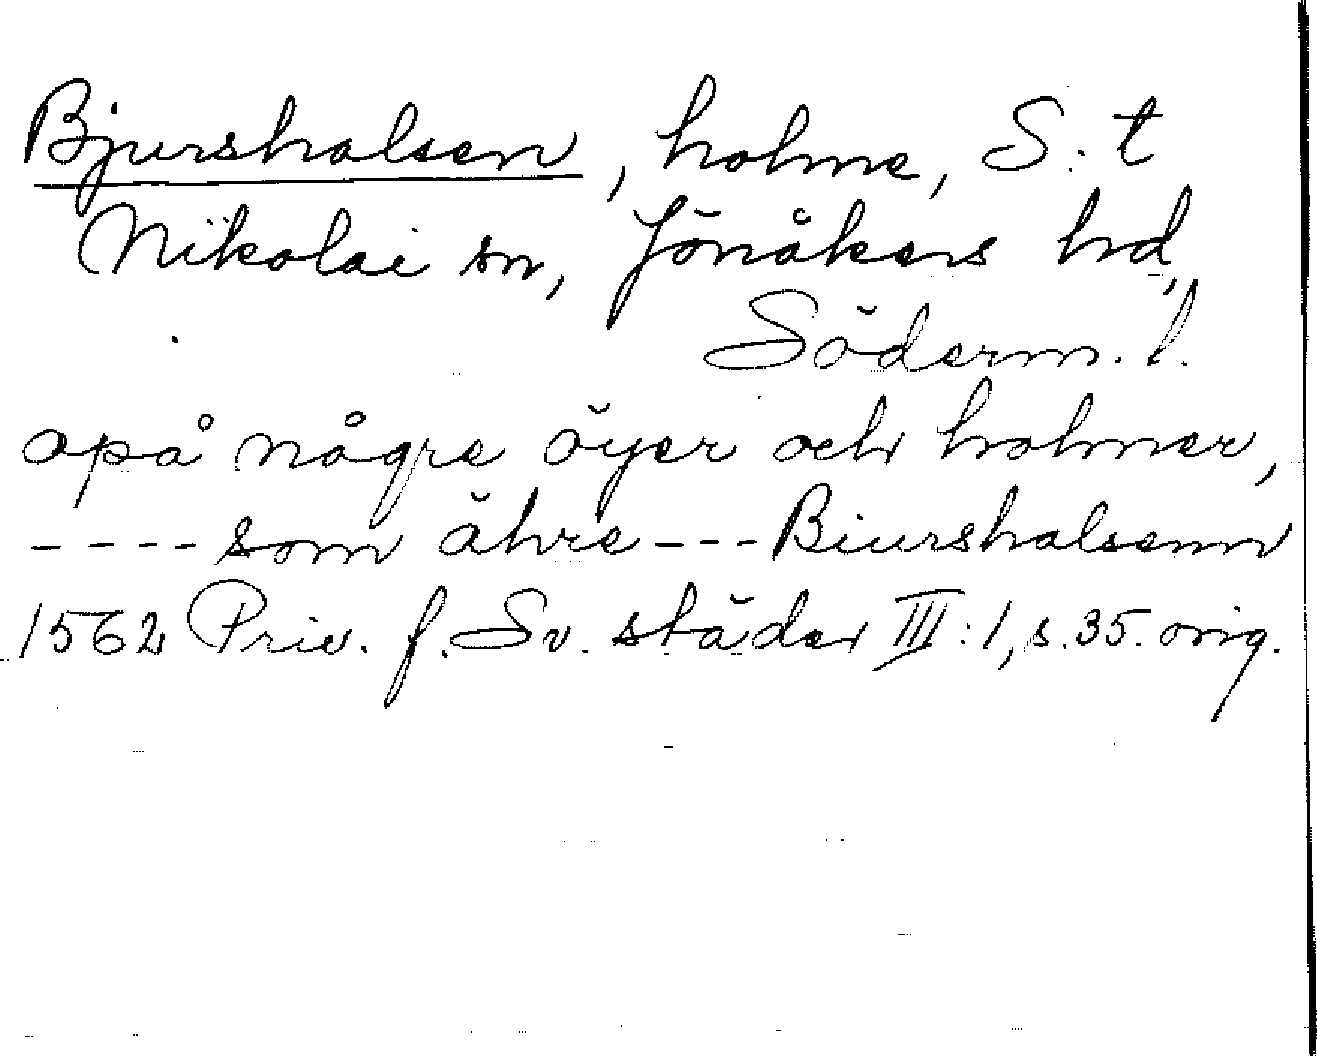 Bjurshalsen, holme, S:t
Nikolai sn, Jönåkers hd,
Söderm. l.
opå någre öyer och holmer,
---- som ähre --- Biurshalsenn
1562 Priv. f. Sv. städer III:1, s. 35. orig.